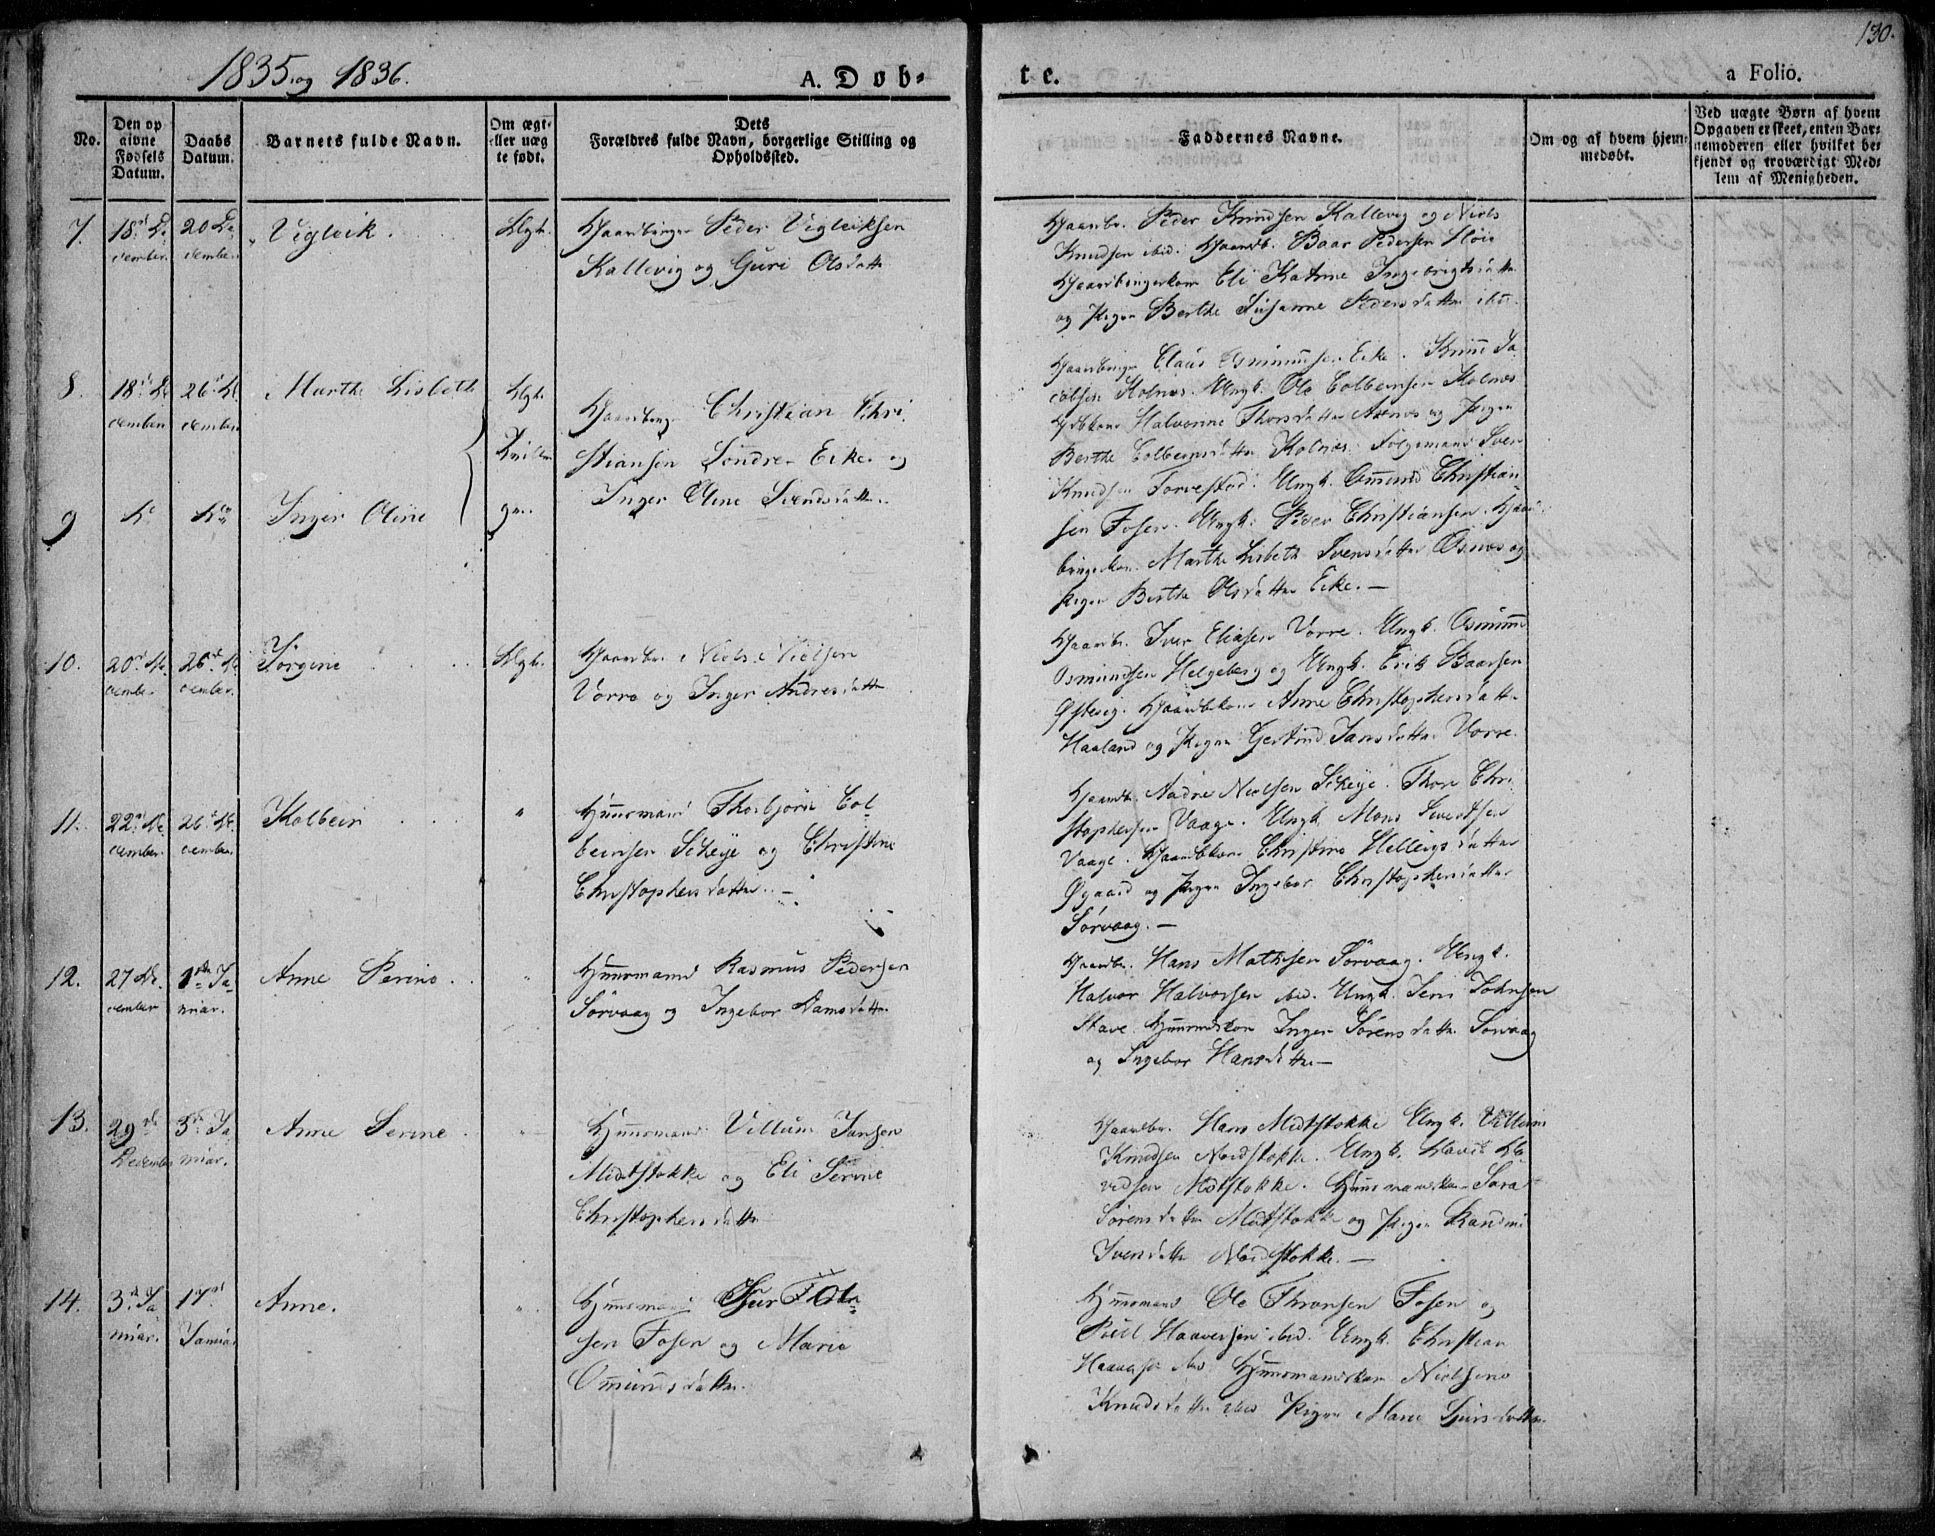 130.
1835 og 1836.
A. Døb-
te.
a Folio.
No.
Den op
givne
Fødsels
Datum.
Daabs
Datum.
Barnets fulde Navn.
Om ægt-
eller uæg
te født.
Dets
Forældres fulde Navn, borgerlige Stilling og
Opholdssted.
Faddernes Navne.
Om og af hvem hjem-
medøbt.
Ved uægte Børn af hvem
Opgaven er skeet, enten Bar-
nemoderen eller hvilket be-
kjendt og troværdigt Med-
lem af Menigheden.
7.
18de De
cember.
20 De
cember.
Vigleik.
Ægte.
Gaardbruger Peder Vigleiksen
Kallevig og Guri Olsdatter
Gaardbr. Peder Knudsen Kallevig og Niels
Knudsen ibid. Gaardb. Baar Pedersen Høie
Gaardbrugerkone Eli Katrine Ingebrigtsdatter
og Pigen Berthe Susanne Pedersdatter ibid.
8.
18de De
cember
26de De
cember
Marthe Lisbeth
Ægte.
Tvillin
Gaardbruger Christian Chri
stiansen Søndre Eike og
Inger Oline Svendsdatter.
9
Do
Do
Inger Oline
ger.
Gaardbruger Claus Osmundsen Eike. Knud Ja
cobsen Kolnæs. Ungk. Ole Colbensen Kolnæs
Halvorine Thorsdatter Axnæs og Pigen
Berthe Colbensdatter Kolnæs. Følgemand Sven
Knudsen Torvestad. Ungk. Omund Christian-
sen Fosen. Ungk. Peder Christiansen. Gaard
brugerkone Marthe Lisbeth Svensdatter Osnæs og
Pigen Berthe Olsdatter Eike. —
10.
20de De
cember
26de De
cember.
Jørgine
Ægte.
Gaardbr. Niels Nielsen
Vorre og Inger Andresdatter
Gaardbr. Iver Eliasen Vorre. Ungk. Osmund
Osmundsen Helgeberg og Ungk. Erik Baarsen
Østevig. Gaardbkone Anne Christophersdatter
Haaland og Pigen Gertrud Jansdatter Vorre.
11.
22de De
cember.
26de De
cember.
Kolbein
"
Huusmand Thorbjørn Col
beinsen Sikveje og Christine
Christophersdatter. —
Gaardb. Andre Nielsen Sikveje. Thore Chri
stophersen Vaage. Ungk. Mons Sivertsen
Vaage. Gaardbkone Christine Helleigsdatter
Øgaard og Pigen Ingebor Christophersdatter
Sørvaag. —
12.
27 De
cember
1ste Ja-
nuar.
Anne Perine
"
Huusmand Rasmus Pedersen
Sørvaag og Ingebor Samsdatter
Gaardbr. Hans Mathisen Sørvaag. Ungk.
Halvor Halvorsen ibid. Ungk. Jens Johnsen
Stave. Huusmdskone Inger Sørensdatter Sørvaag
og Ingebor Hansdatter —
13.
29de
December
3de Ja
nuar.
Anne Serine
"
Huusmand Villum Jansen
Midtstokke og Eli Serine
Christophersdatter
Gaardbr. Hans Midtstokke Ungk. Villum
Knudsen Nordstokke. Ungk. David Da
vidsen Midtstokke. Huusmandskone Sara
Sørensdatter Midtstokke og Pigen Randine
Svensdatter Nordstokke. —
14.
3de Ja
nuar.
17de
Januar
Anne.
"
Huusmand Sjur Ole-
sen Fosen og Marie
Omundsdatter.
Huusmand Ole Thronsen Fosen og
Poul Haaversen ibid. Ungk. Christian
Haaversen ibid. Huusmandskone Nielsine
Knudsdatter ibid Pigen Marie Sjursdatter